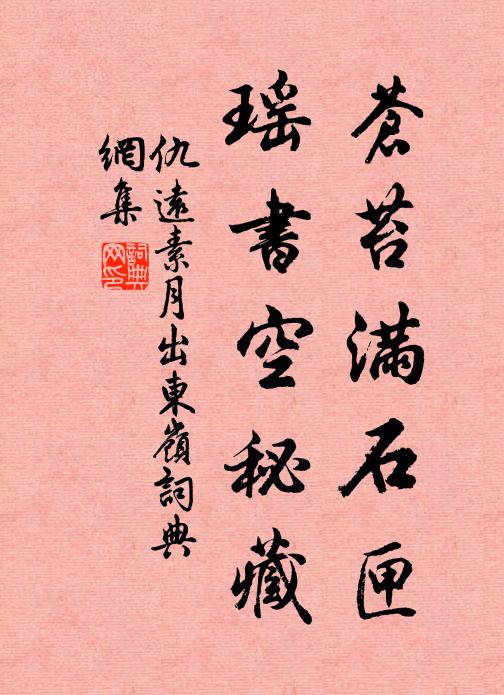 蒼苔滿石匣
瑶書空秘藏
仇遠素月出東嶺詞典
網集
詞典網印